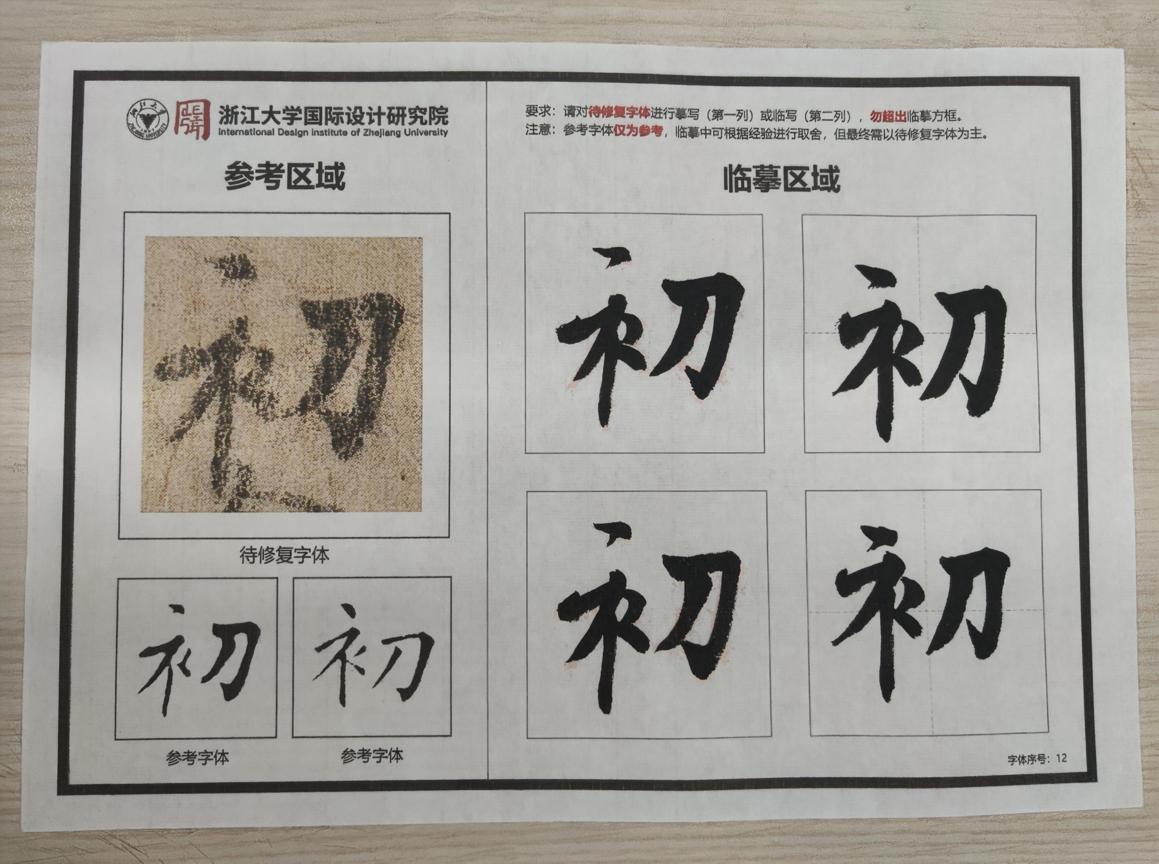 浙江大学国际设计研究院
International Design Institute of Zhejiang University
参考区域
初
待修复字体
初
初
参考字体
参考字体
要求：请对待修复字体进行摹写（第一列）或临写（第二列），勿超出临摹方框。
注意：参考字体仅为参考，临摹中可根据经验进行取舍，但最终需以待修复字体为主。
临摹区域
初
初
初
初
字体序号：12